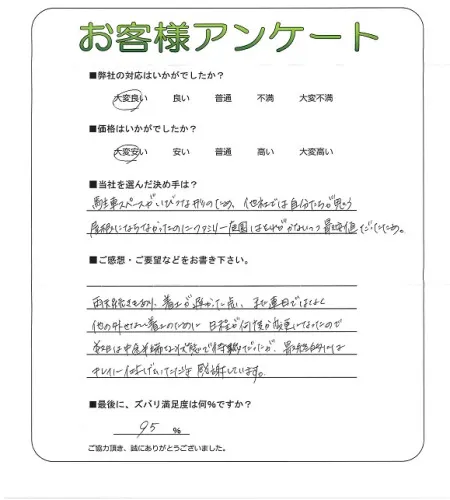 お客様アンケート
■弊社の対応はいかがでしたか？
大変良い 良い 普通 不満 大変不満
■価格はいかがでしたか？
大変安い 安い 普通 高い 大変高い
■当社を選んだ決め手は？
駐車スペースがいびつな形のため、他社では自分たちが思う
屋根にならなかったのにファミリー庭園は だったため。
■ご感想・ご要望などをお書き下さい。
雨 続きもあり、着工が遅かった点、また連日ではなく
他の外せない着工のために 日程が何度か変更になったので
は中途半端な状態で だったが、最終的には
キレイに仕上げていただき 感謝しています。
■最後に、ズバリ満足度は何％ですか？
95 ％
ご協力頂き、誠にありがとうございました。